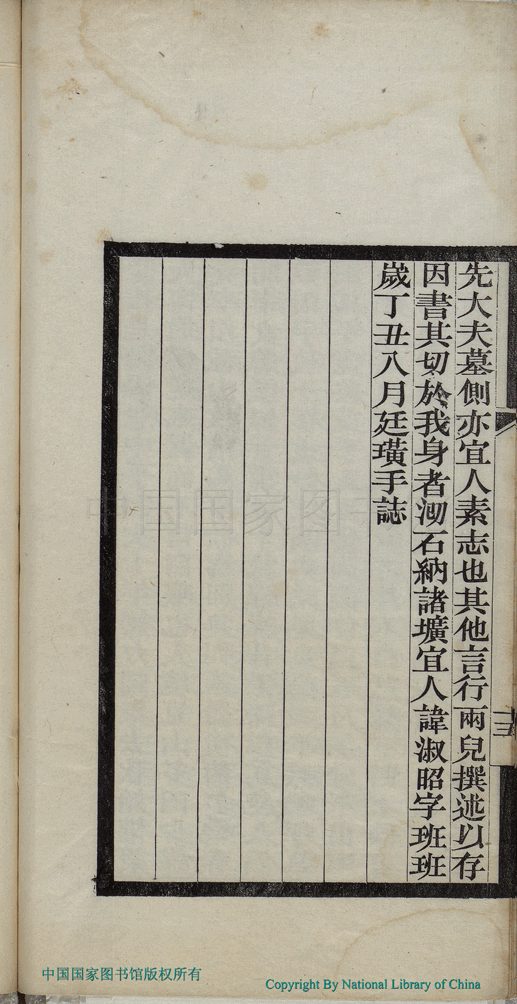 先大夫墓側亦宜人素志也其他言行兩兒撰述以存
因書其切於我身者泐石納諸壙宜人諱淑昭字班班
歲丁丑八月廷璜手誌
三
中国国家图书馆版权所有
Copyright By National Library of China